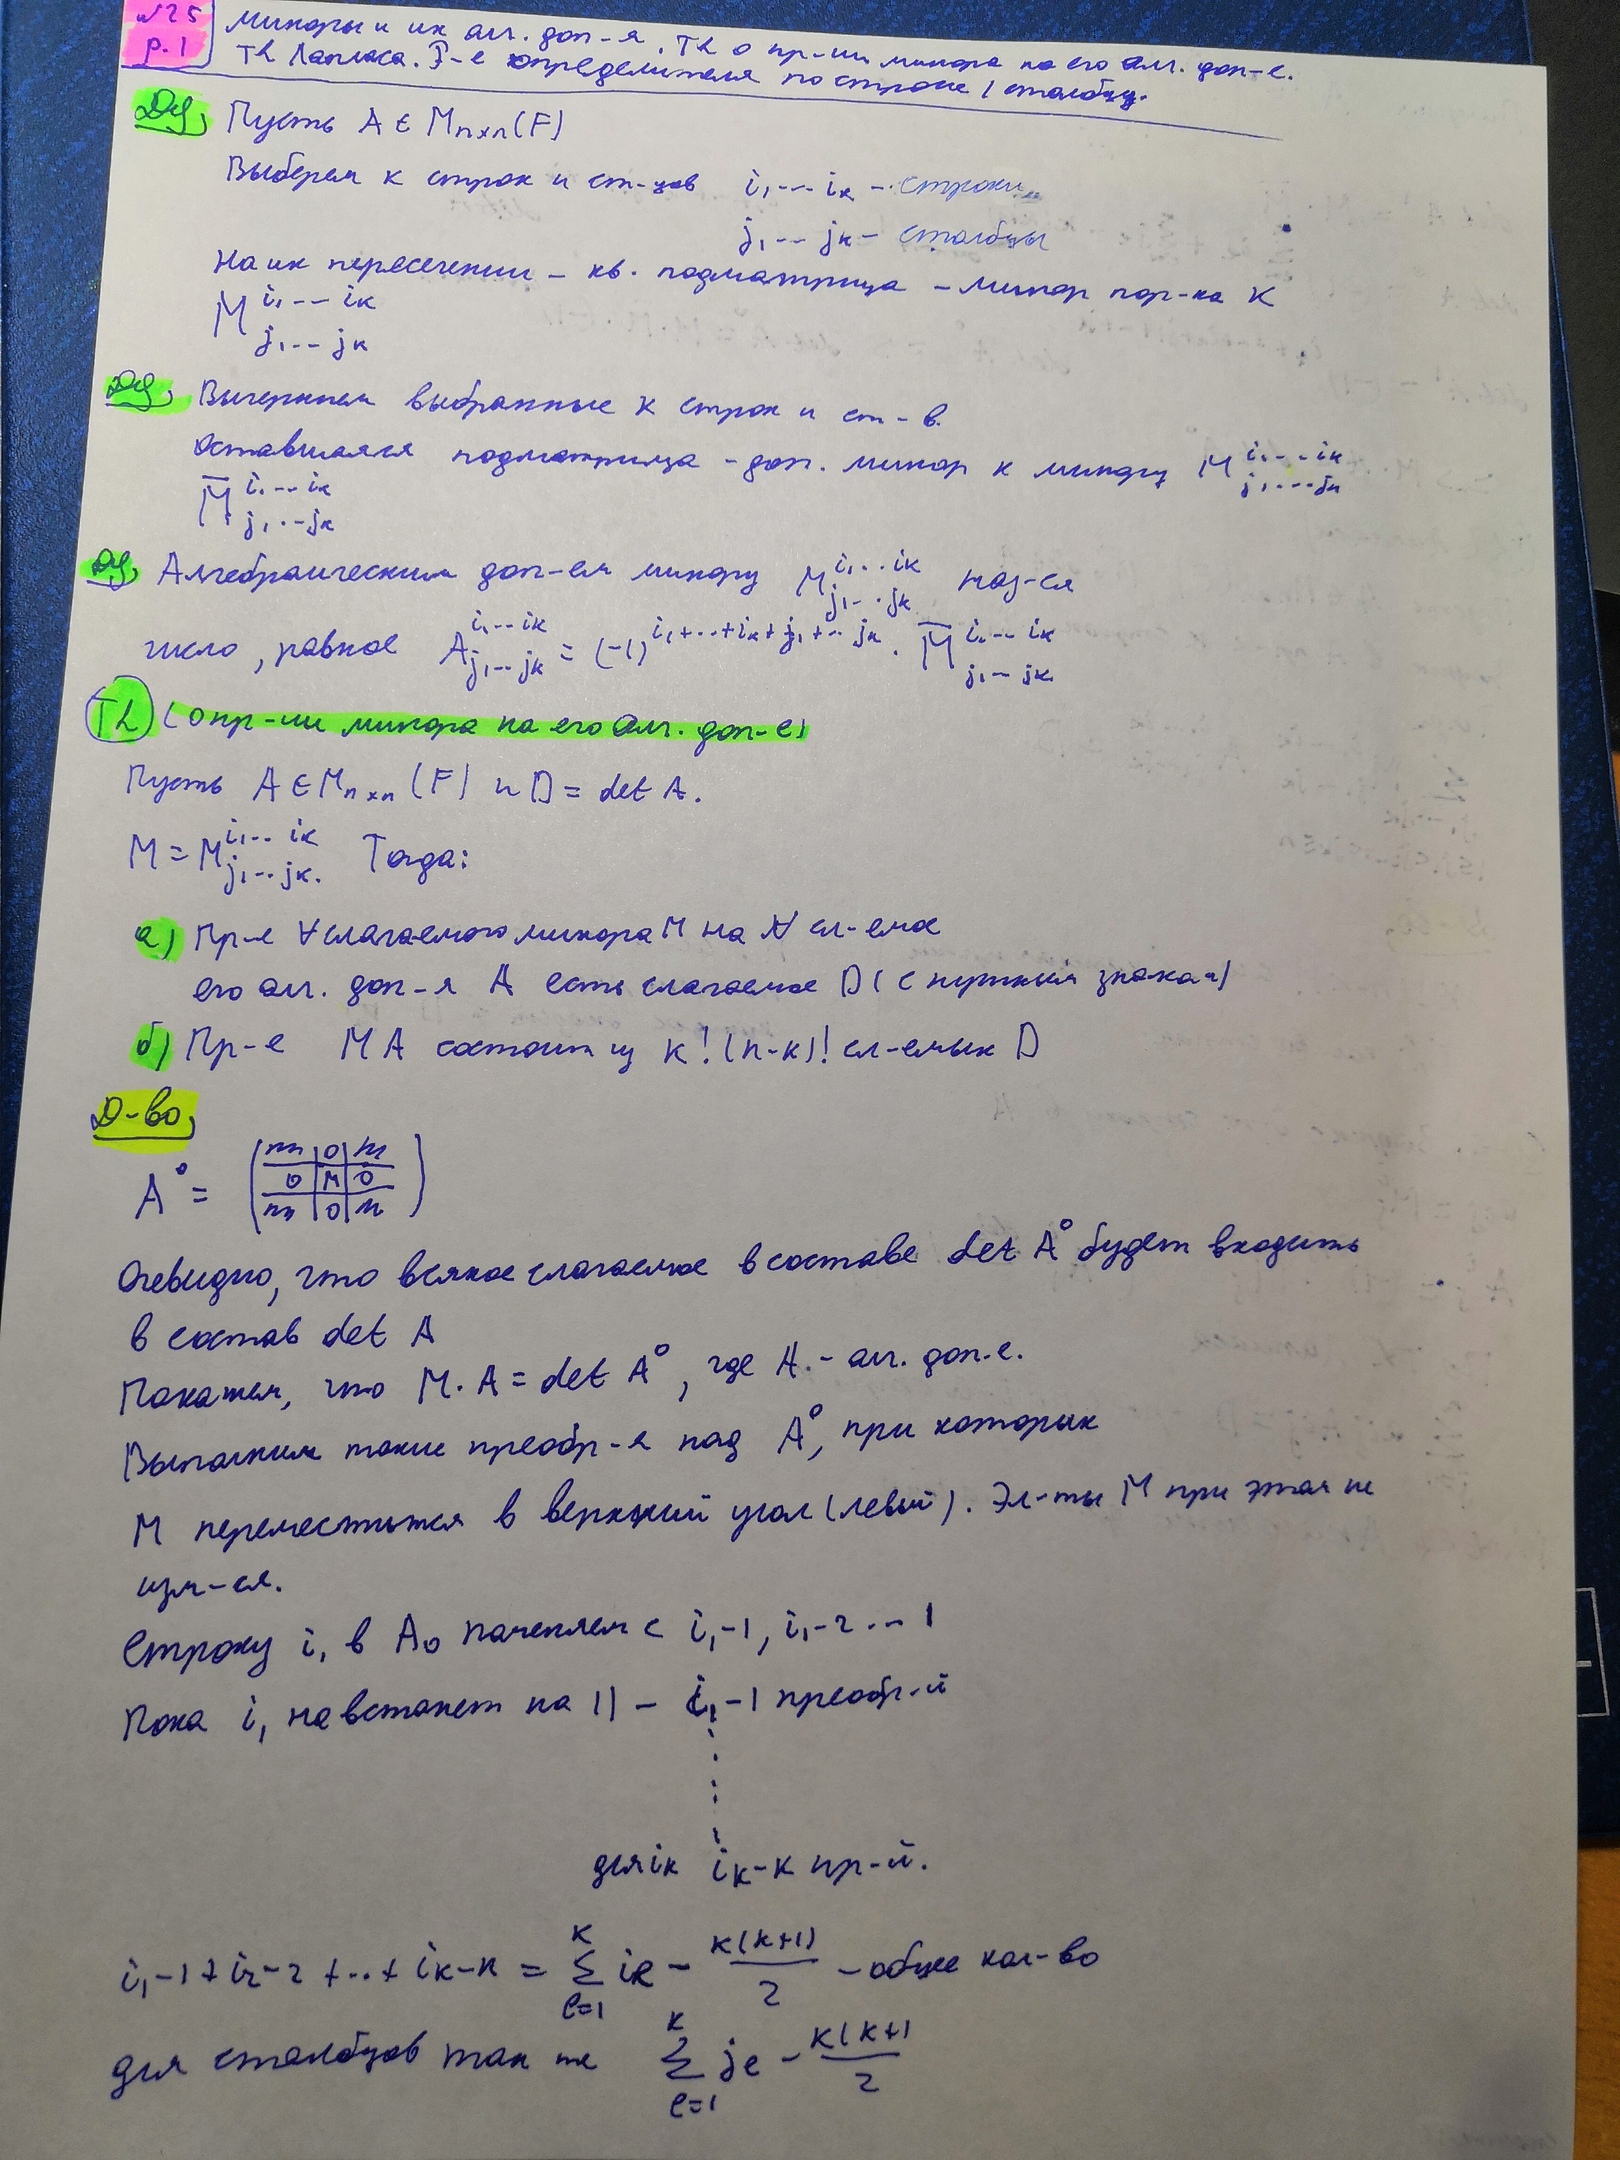 №25
р.1
Миноры и их алг. доп-я. Th о пр-ии минора на его алг. доп-е.
Th Лапласа. Р-е определителя по строке / столбцу.
Df, Пусть A ∈ M_{n×n}(F)
Выберем k строк и ст-цов i₁ --- i_k - строки
j₁ --- j_k - столбцы
На их пересечении - кв. подматрица - минор пор-ка k
M^{i₁ --- i_k}_{j₁ --- j_k}
Df, Вычеркнем выбранные k строк и ст-в.
Оставшаяся подматрица - доп. минор к минору M^{i₁ --- i_k}_{j₁ --- j_k}
M̄^{i₁ --- i_k}_{j₁ --- j_k}
Df, Алгебраическим доп-ем минору M^{i₁ ... i_k}_{j₁ ... j_k} наз-ся
число, равное A^{i₁ --- i_k}_{j₁ --- j_k} = (-1)^{i₁+...+i_k+j₁+... j_k} · M̄^{i₁ --- i_k}_{j₁ --- j_k}
Th (о пр-ии минора на его алг. доп-е)
Пусть A ∈ M_{n×n}(F) и D = det A.
M = M^{i₁ --- i_k}_{j₁ --- j_k}. Тогда:
а) Пр-е ∀ слагаемого минора M на ∀ сл-емое
его алг. доп-я A есть слагаемое D (с нужным знаком)
б) Пр-е MA состоит из k!(n-k)! сл-емых D
Д-во,
A° =
0
0 M 0
0
Очевидно, что всякое слагаемое в составе det A° будет входить
в состав det A
Покажем, что M·A = det A°, где A - алг. доп-е.
Выполним такие преобр-я над A°, при которых
M переместится в верхний угол (левый). Эл-ты M при этом не
изм-ся.
Строку i₁ в A₀ поменяем с i₁-1, i₁-2 ... 1
Пока i₁ не встанет на 1) - i₁-1 преобр-й
для i_k i_k-k пр-й.
i₁-1+i₂-2+...+i_k-k = Σ_{l=1}^{k} i_l - k(k+1)/2 - общее кол-во
для столбцов так же Σ_{l=1}^{k} j_l - k(k+1/2